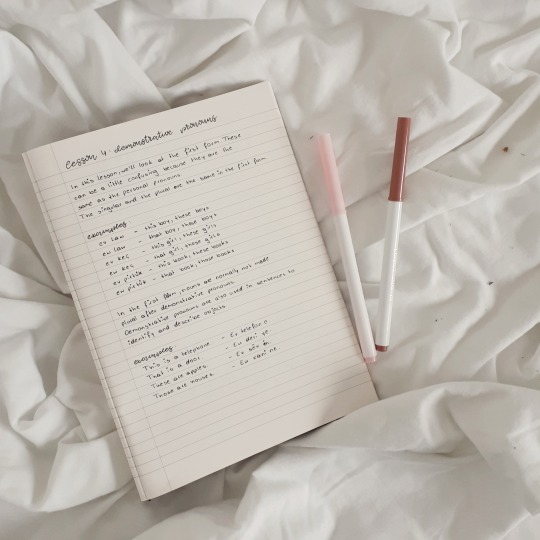 Lesson 4: demonstrative pronouns
In this lesson, we'll look at the first form. These
can be a little confusing because they are the
same as the personal pronouns.
The singular and the plural are the same in the first form.
examples:
ev law - this boy, these boys
ew law - that boy, those boys
ev keç - this girl, these girls
ew keç - that girl, those girls
ev pirtûk - this book, these books
ew pirtûk - that book, those books
In the first form, nouns are normally not made
plural after demonstrative pronouns.
Demonstrative pronouns are also used in sentences to
identify and describe objects.
examples:
This is a telephone - Ev telefon e
That is a door - Ew derî ye
These are apples - Ev sêv in
Those are houses - Ew xanî ne